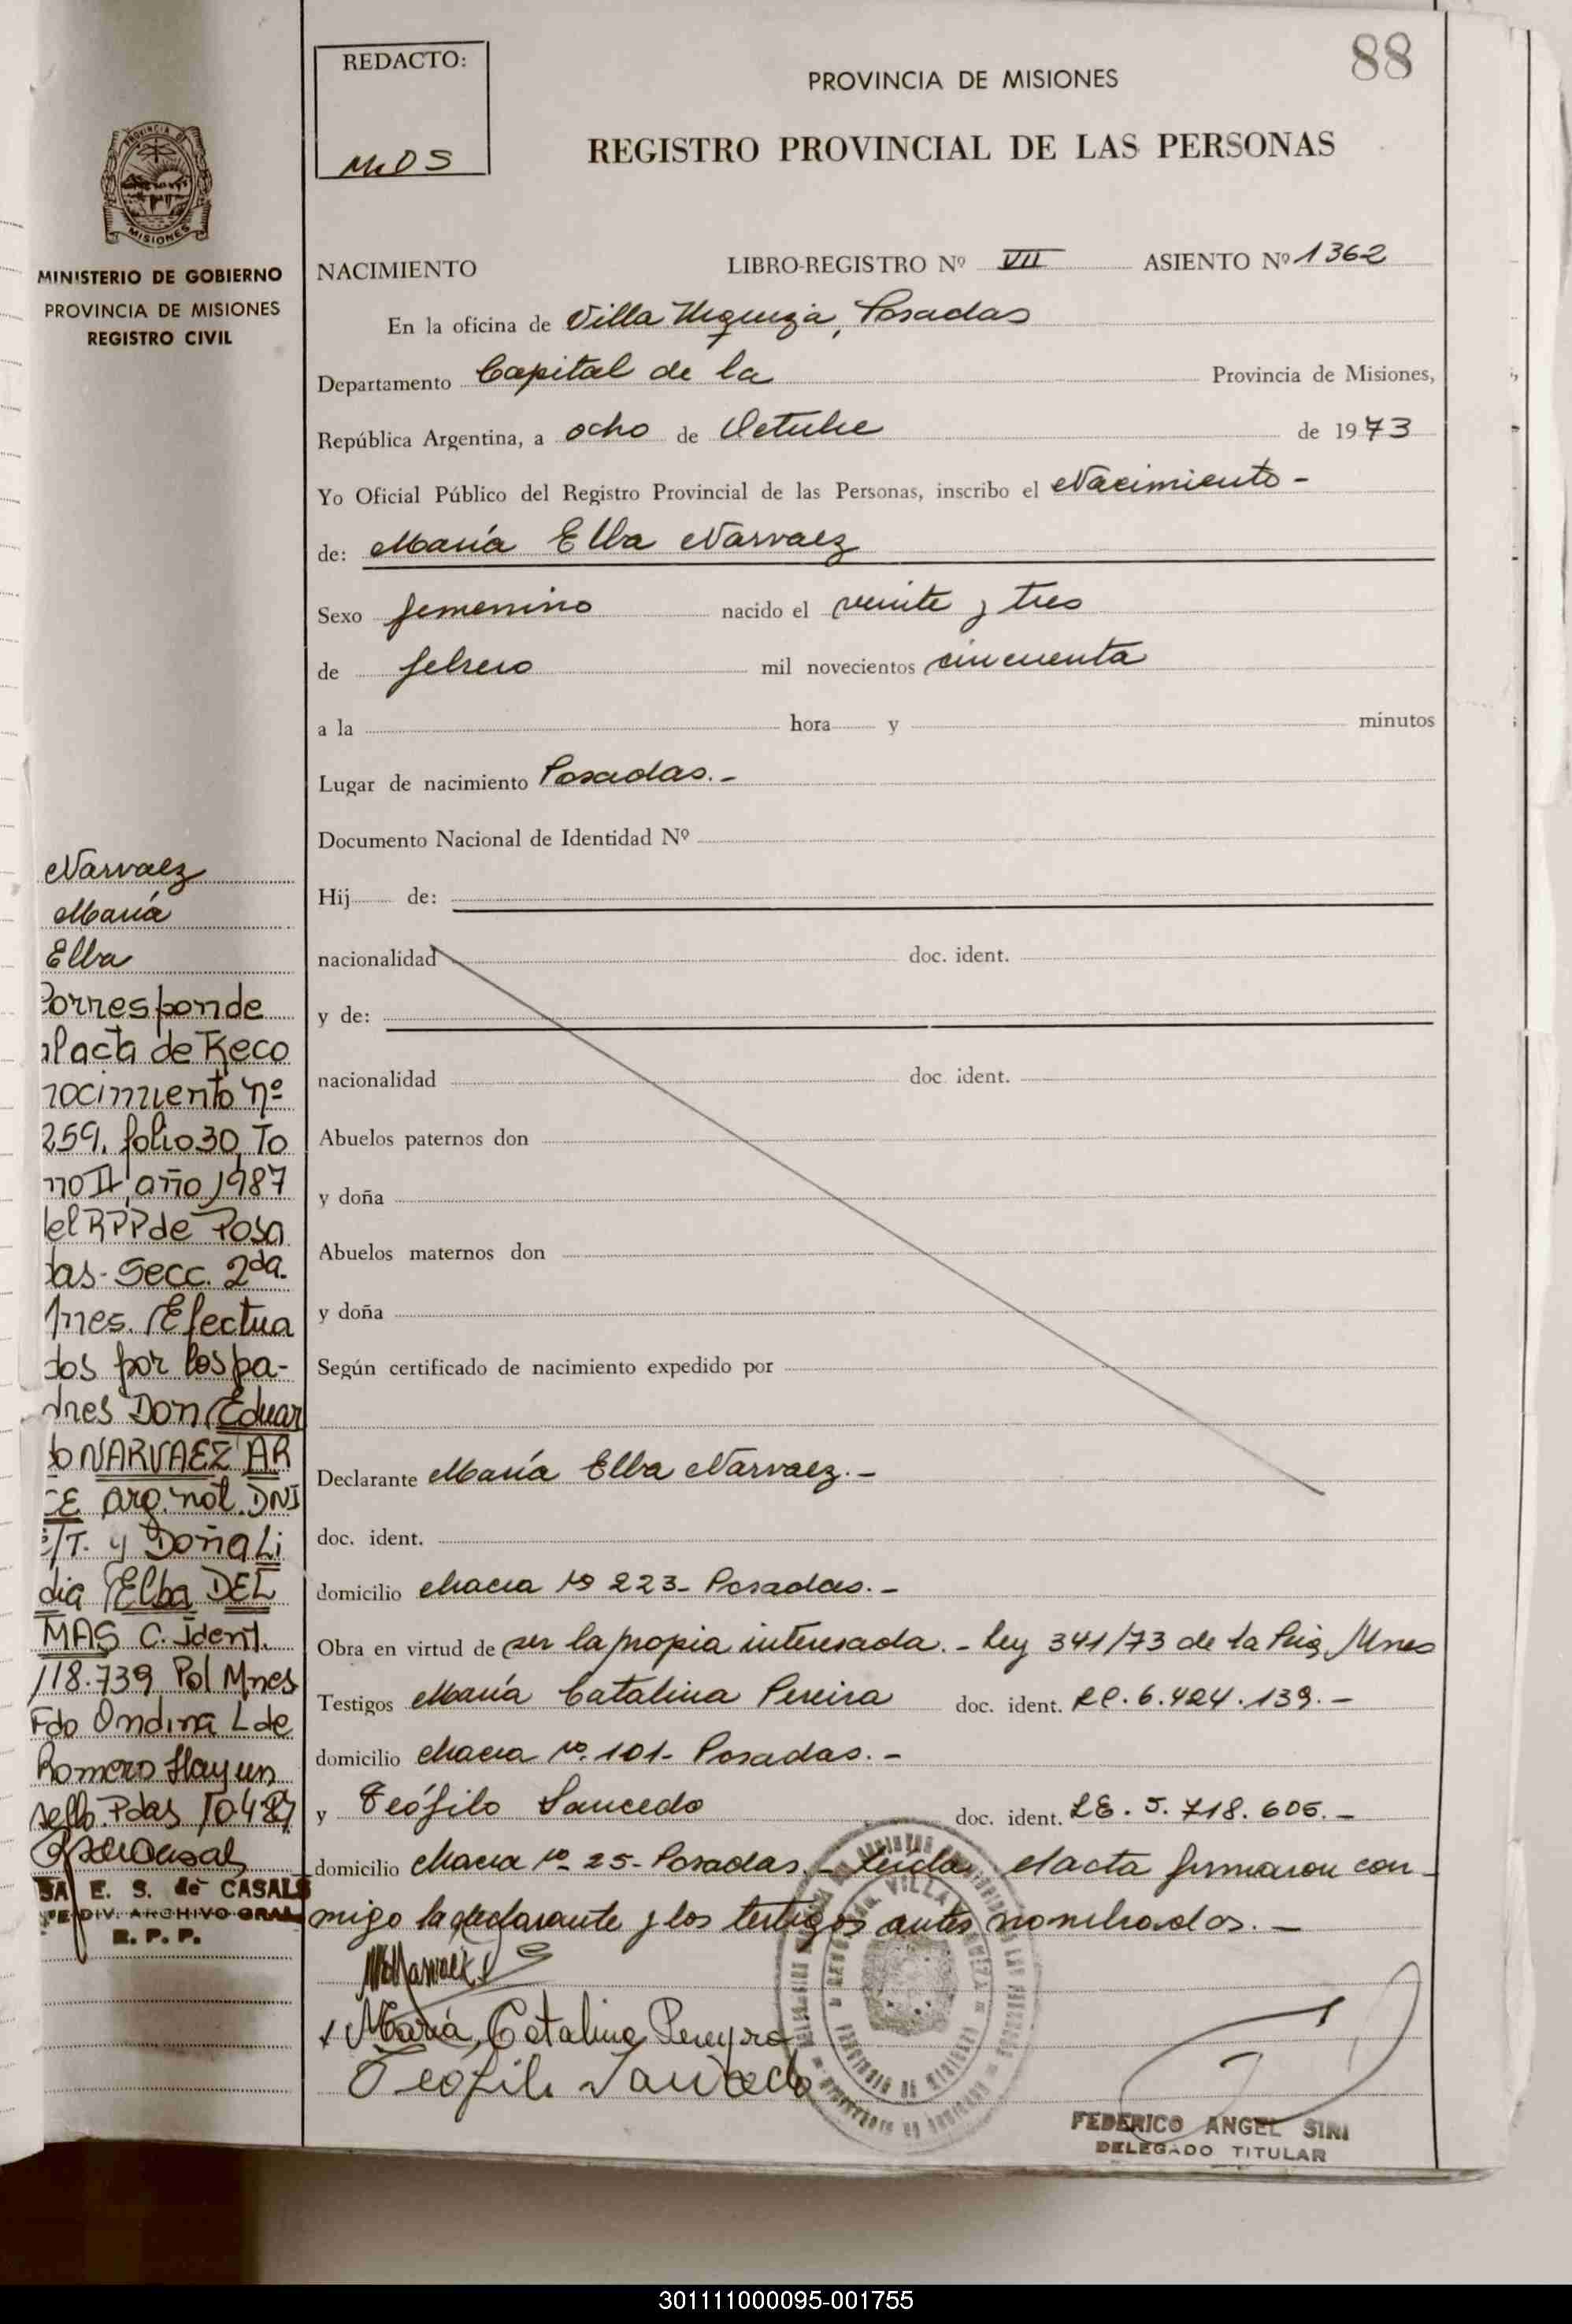 88
REDACTO:
PROVINCIA DE MISIONES
REGISTRO PROVINCIAL DE LAS PERSONAS
PROVINCIA DE
MISIONES
MINISTERIO DE GOBIERNO
PROVINCIA DE MISIONES
REGISTRO CIVIL
NACIMIENTO LIBRO-REGISTRO Nº VII ASIENTO Nº 1362
En la oficina de Villa Urquiza, Posadas
Departamento Capital de la Provincia de Misiones,
República Argentina, a ocho de Octubre de 1973
Yo Oficial Público del Registro Provincial de las Personas, inscribo el Nacimiento -
de: María Elba Narvaez
Sexo femenino nacido el veinte y tres
de febrero mil novecientos cincuenta
a la hora y minutos
Lugar de nacimiento Posadas.-
Documento Nacional de Identidad Nº
Hij de:
nacionalidad doc. ident.
y de:
nacionalidad doc. ident.
Abuelos paternos don
y doña
Abuelos maternos don
y doña
Según certificado de nacimiento expedido por
Declarante María Elba Narvaez.-
doc. ident.
domicilio chacra Nº 223- Posadas.-
Obra en virtud de ser la propia interesada.- Ley 341/73 de la Mnes
Testigos María Catalina Pereira doc. ident. 6.424.139.-
domicilio chacra Nº 101- Posadas.-
y Teófilo Saucedo doc. ident. LE. 5.718.606.-
domicilio chacra Nº 25- Posadas.- Leida el acta firmaron con-
migo la declarante y los testigos antes nombrados.-
María Catalina Pereyra
Teófilo Saucedo
FEDERICO ANGEL SINI
DELEGADO TITULAR
Narvaez
María
Elba
Corresponde
al acta de Reco
nocimiento nº
259, folio 30, To
mo II, año 1987
del RPP de Posa
das- Secc. 2da.
Mnes. Efectua
dos por los pa-
dres Don Eduar
do NARVAEZ AR
CE arg. nat. DNI
S/T. y Doña Li
dia Elba DEL
MAS C. Ident.
118.739 Pol Mnes
Fdo Ondina L de
Romero Hay un
sello. Pdas
E. S. de CASALS
DIV. ARCHIVO GRAL
R. P. P.
301111000095-001755